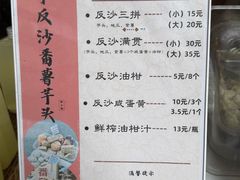 反沙番薯芋头
反沙三拼 (小) 15元
芋头、地瓜、甘薯 (大) 20元
反沙满贯 (小) 30元
(大) 35元
反沙油柑 5元/8个
反沙咸蛋黄 10元/3个
3.5元/1个
鲜榨油柑汁 13元/瓶
温馨提示